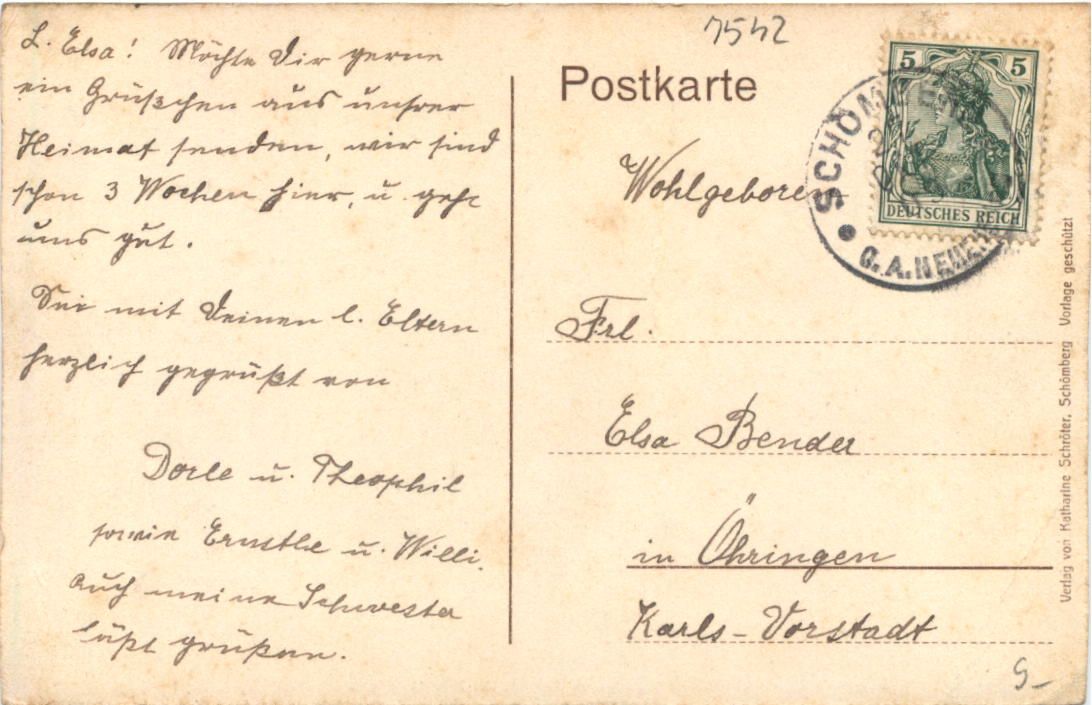 L. Elsa! Möchte Dir gerne
ein Grüßchen aus unsrer
Heimat senden, wir sind
schon 3 Wochen hier, u. geht
uns gut.
Sei mit Deinen l. Eltern
herzlich gegrüßt von
Dorle u. Theophil
sowie Ernstle u. Willi.
Auch meine Schwester
läßt grüßen.
7542
Postkarte
5 5
DEUTSCHES REICH
SCHÖMBERG
O.A. NEUENB
Wohlgeboren
Frl.
Elsa Bender
in Öhringen
Karls-Vorstadt
Verlag von Katharine Schröter, Schömberg Vorlage geschützt